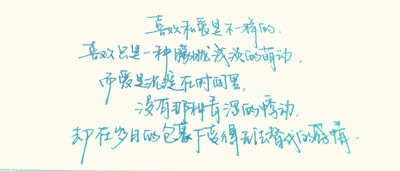 喜欢和爱是不一样的.
喜欢只是一种朦胧浅淡的萌动.
而爱是沉淀在时间里,
没有那种青涩的悸动.
却在岁月的包裹下变得无法替代的醇情.